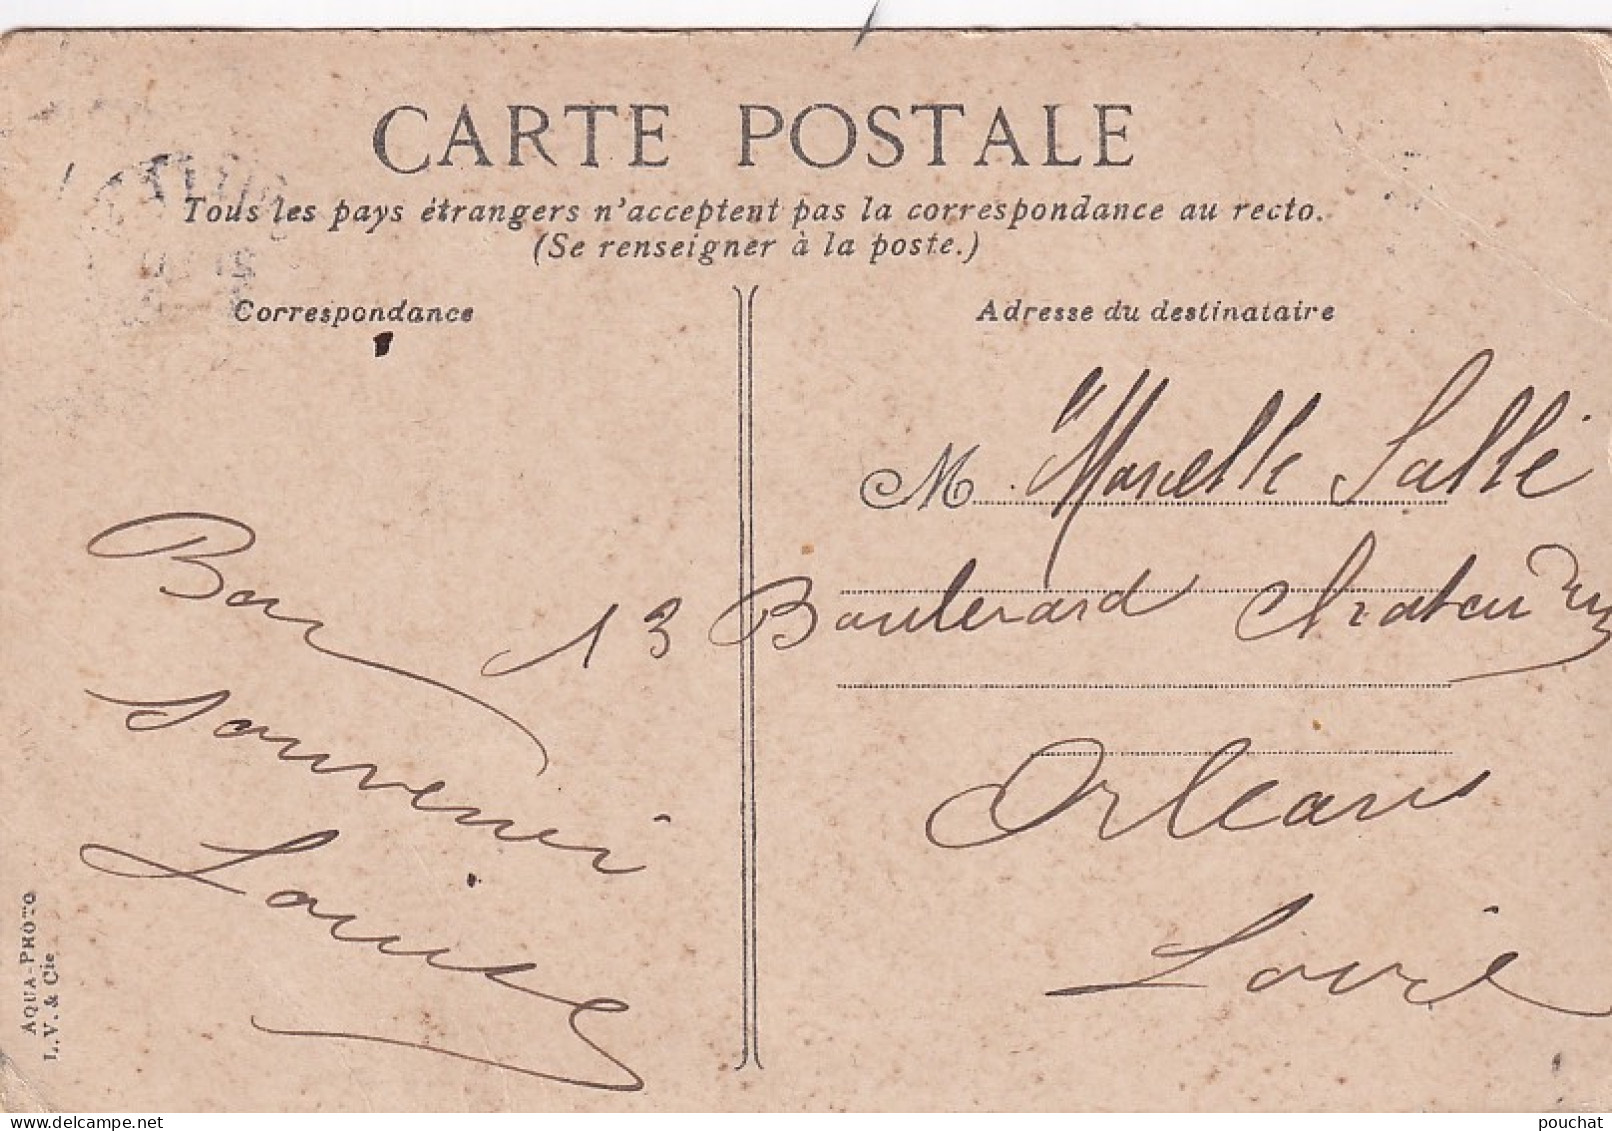 CARTE POSTALE
Tous les pays étrangers n'acceptent pas la correspondance au recto.
(Se renseigner à la poste.)
Correspondance
Adresse du destinataire
Bon
souvenir
Louise
M. Marcelle Sallé
13 Boulevard Chateaudun
Orléans
Loiret
AQUA-PHOTO
L. V. & Cie
pouchat